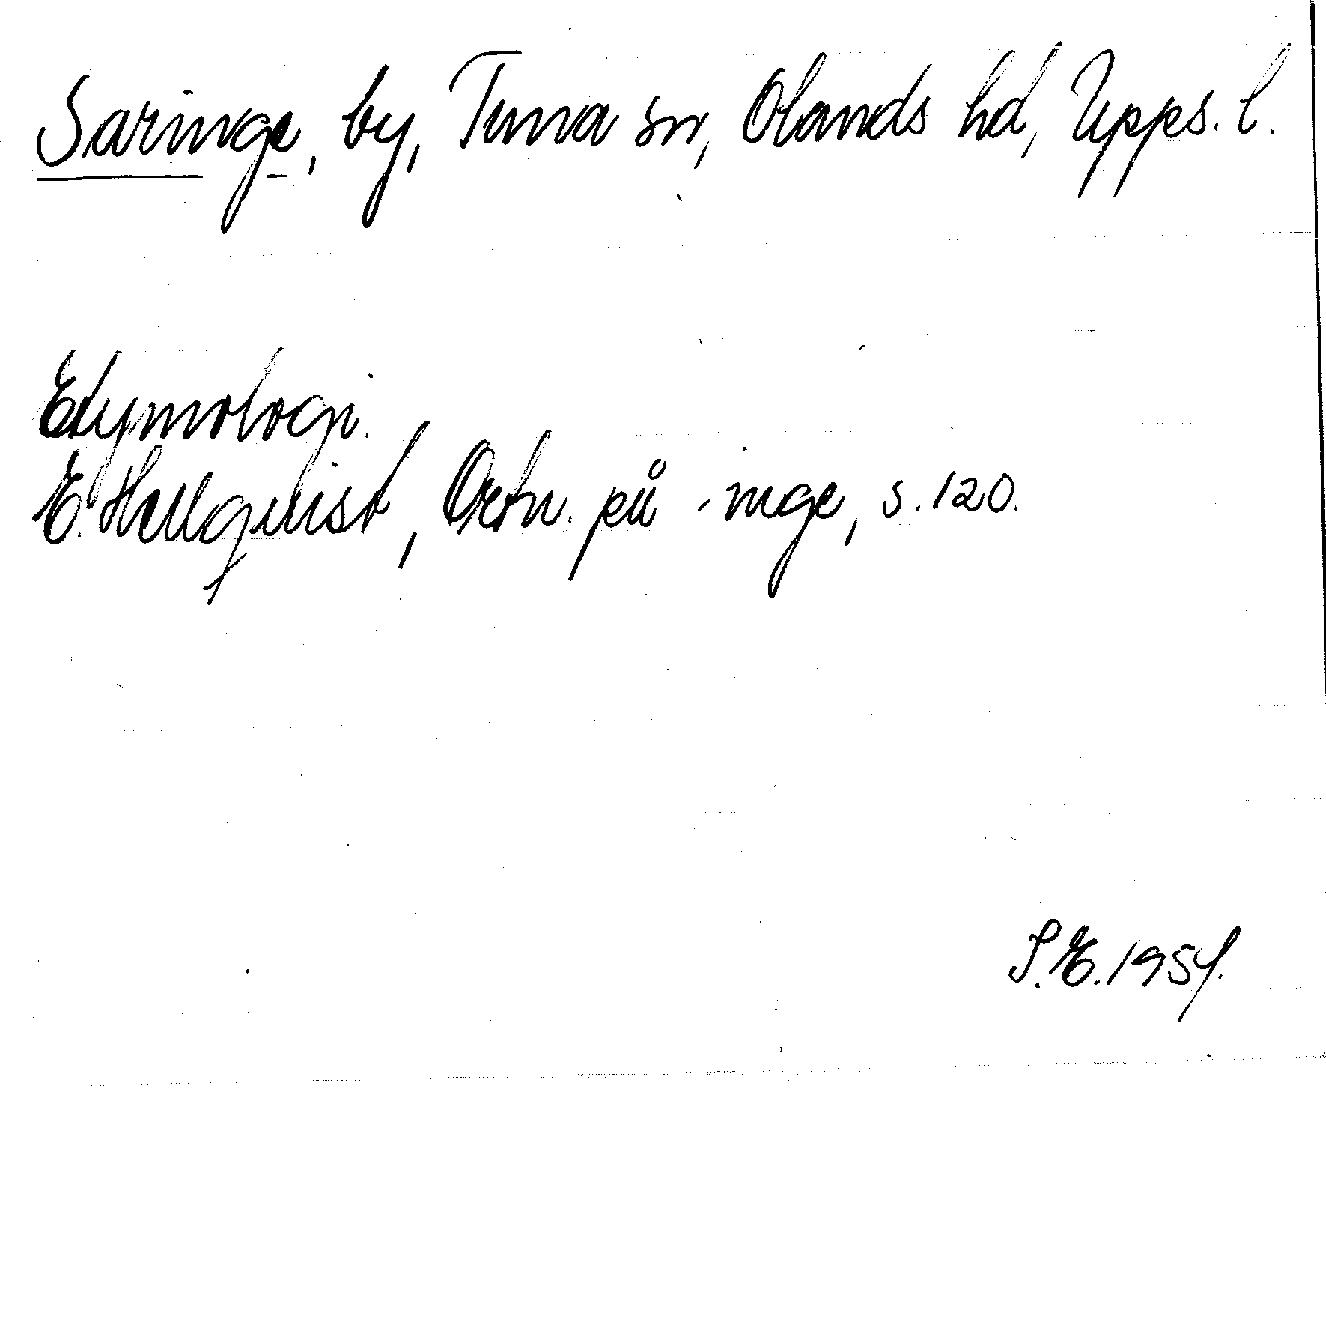 Saringe, by, Tuna sn, Olands hd, Upps. l.
Etymologi.
E. Hellquist, Ortn. på -inge, s. 120.
S. E. 1954.